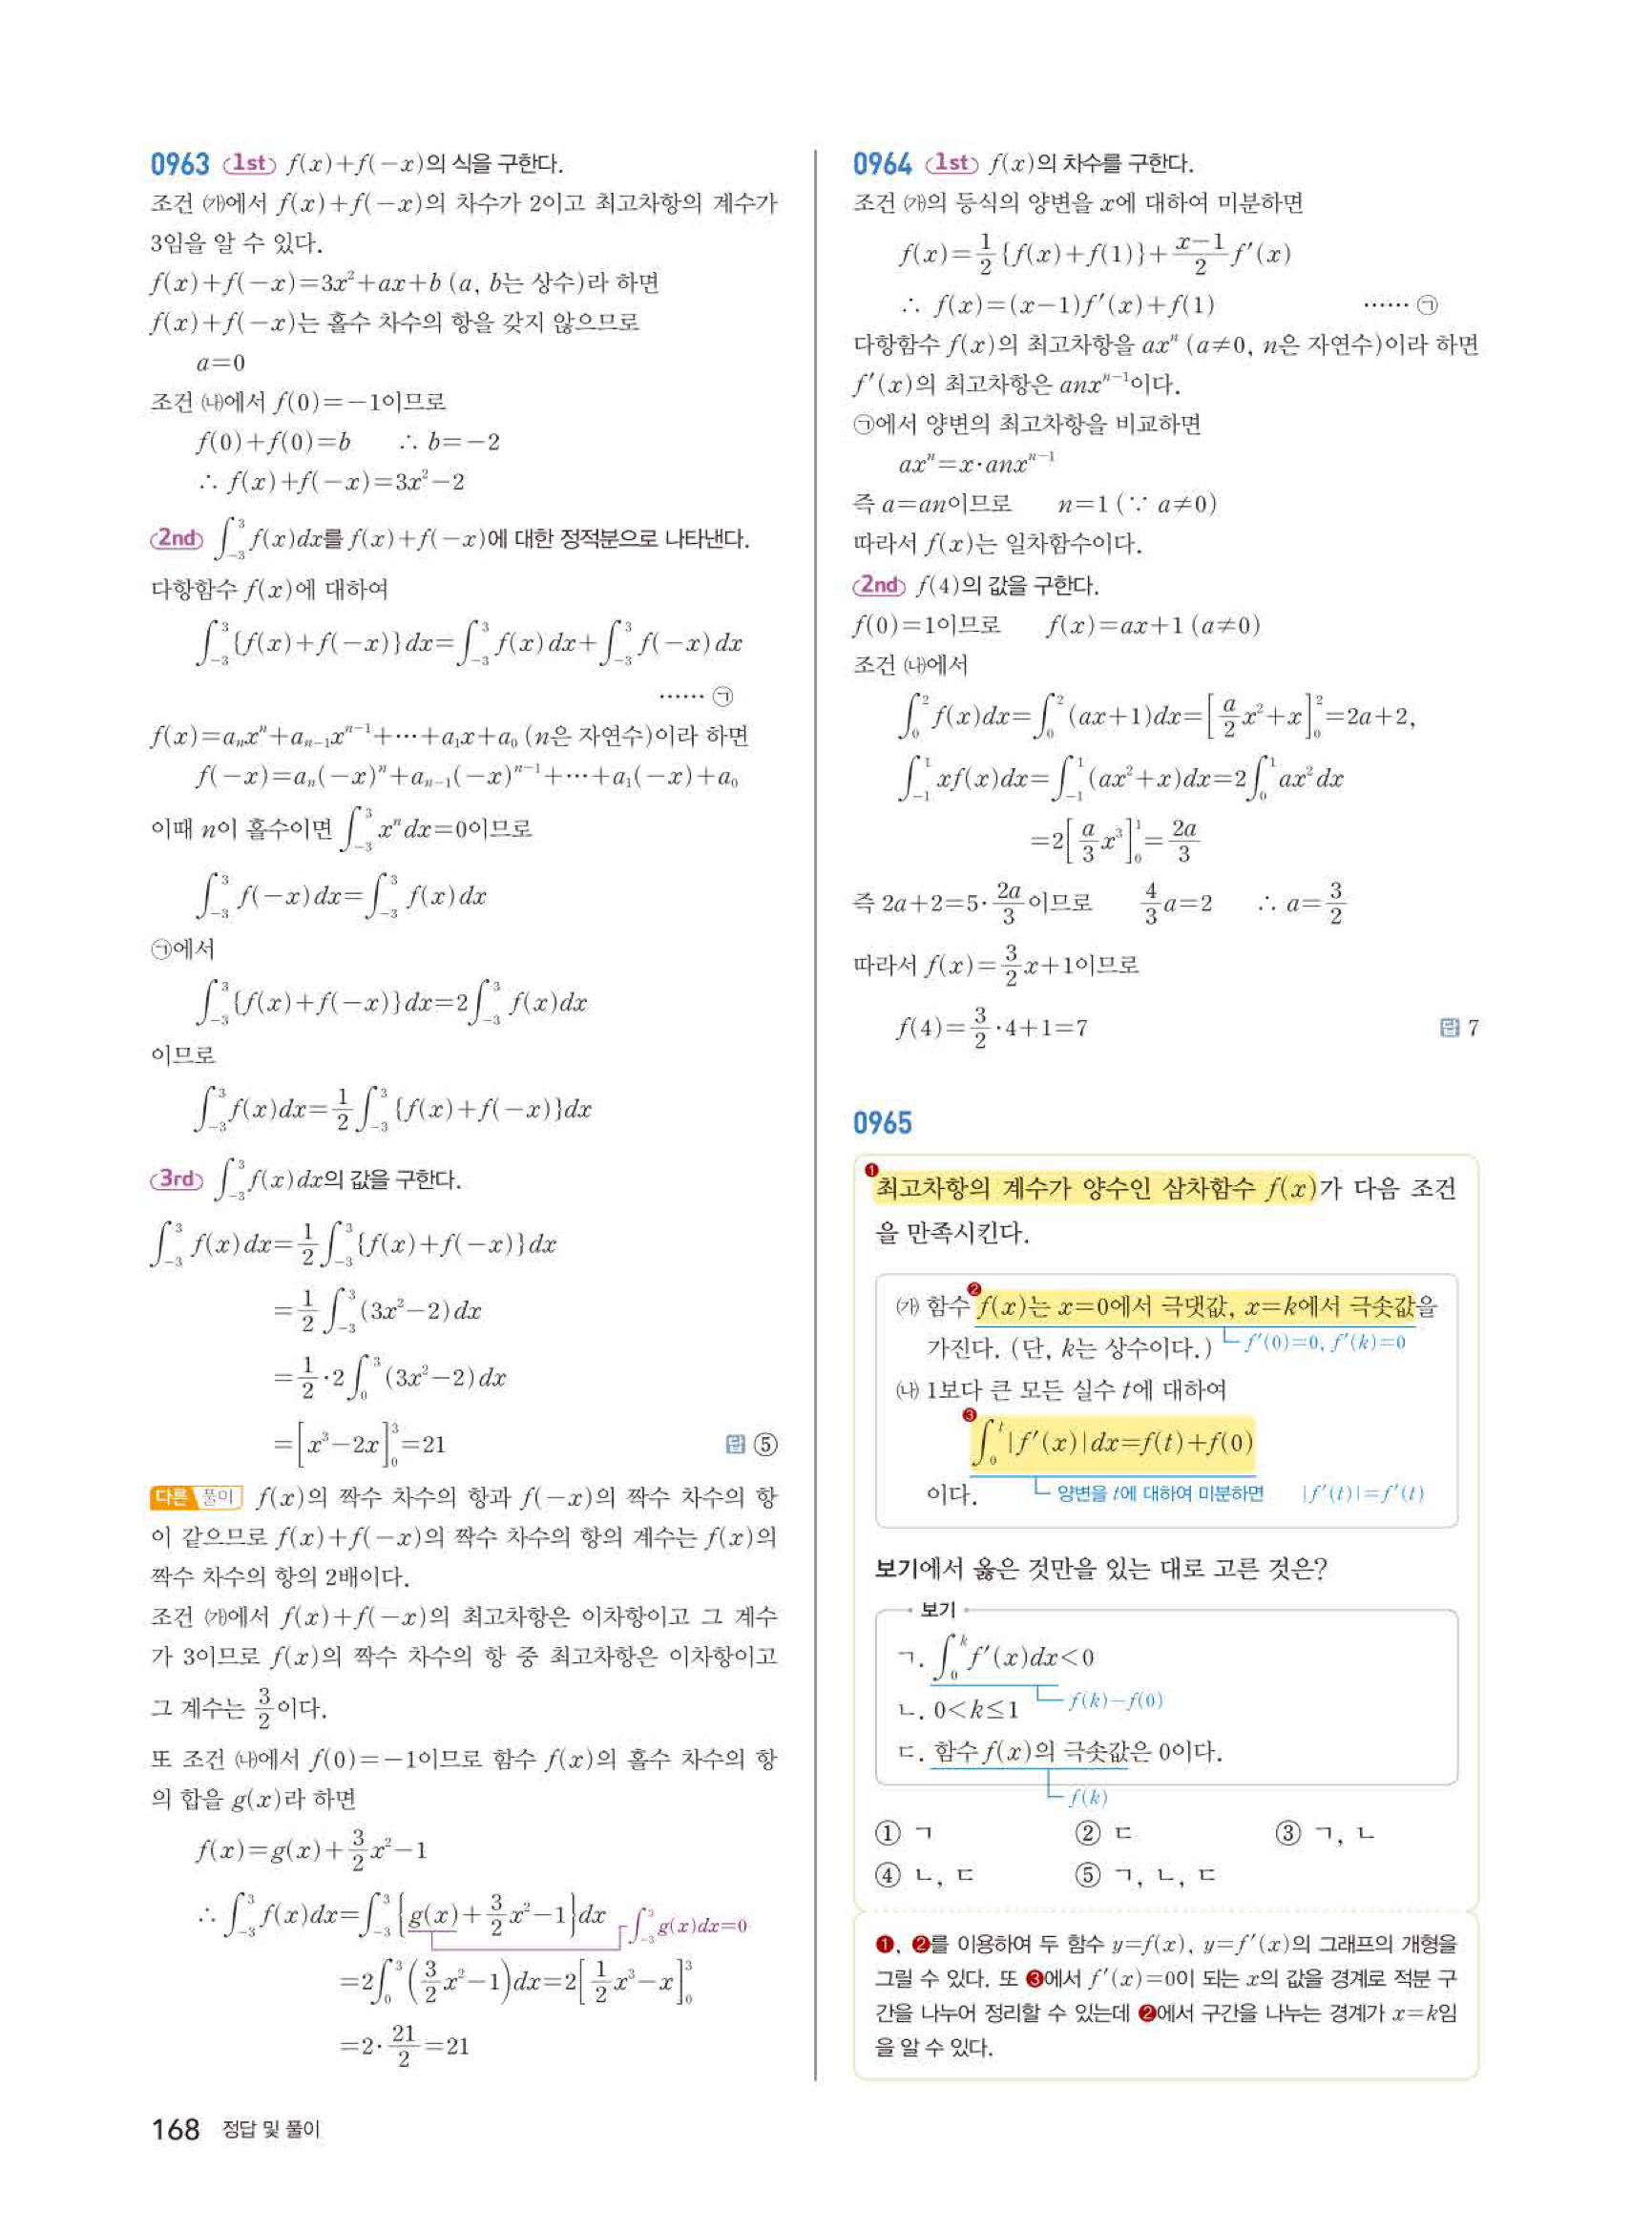 0963 1st f(x)+f(-x)의 식을 구한다.
조건 ㈎에서 f(x)+f(-x)의 차수가 2이고 최고차항의 계수가
3임을 알 수 있다.
f(x)+f(-x)=3x²+ax+b (a, b는 상수)라 하면
f(x)+f(-x)는 홀수 차수의 항을 갖지 않으므로
a=0
조건 ㈏에서 f(0)=-1이므로
f(0)+f(0)=b ∴ b=-2
∴ f(x)+f(-x)=3x²-2
2nd ∫₋₃³ f(x)dx를 f(x)+f(-x)에 대한 정적분으로 나타낸다.
다항함수 f(x)에 대하여
∫₋₃³ {f(x)+f(-x)}dx=∫₋₃³ f(x)dx+∫₋₃³ f(-x)dx
…… ㉠
f(x)=aₙxⁿ+aₙ₋₁xⁿ⁻¹+…+a₁x+a₀ (n은 자연수)이라 하면
f(-x)=aₙ(-x)ⁿ+aₙ₋₁(-x)ⁿ⁻¹+…+a₁(-x)+a₀
이때 n이 홀수이면 ∫₋₃³ xⁿdx=0이므로
∫₋₃³ f(-x)dx=∫₋₃³ f(x)dx
㉠에서
∫₋₃³ {f(x)+f(-x)}dx=2∫₋₃³ f(x)dx
이므로
∫₋₃³ f(x)dx=1/2 ∫₋₃³ {f(x)+f(-x)}dx
3rd ∫₋₃³ f(x)dx의 값을 구한다.
∫₋₃³ f(x)dx=1/2 ∫₋₃³ {f(x)+f(-x)}dx
=1/2 ∫₋₃³ (3x²-2)dx
=1/2·2∫₀³ (3x²-2)dx
=[x³-2x]₀³=21 답 ⑤
다른 풀이 f(x)의 짝수 차수의 항과 f(-x)의 짝수 차수의 항
이 같으므로 f(x)+f(-x)의 짝수 차수의 항의 계수는 f(x)의
짝수 차수의 항의 2배이다.
조건 ㈎에서 f(x)+f(-x)의 최고차항은 이차항이고 그 계수
가 3이므로 f(x)의 짝수 차수의 항 중 최고차항은 이차항이고
그 계수는 3/2이다.
또 조건 ㈏에서 f(0)=-1이므로 함수 f(x)의 홀수 차수의 항
의 합을 g(x)라 하면
f(x)=g(x)+3/2 x²-1
∴ ∫₋₃³ f(x)dx=∫₋₃³ {g(x)+3/2 x²-1}dx ∫₋₃³ g(x)dx=0
=2∫₀³ (3/2 x²-1)dx=2[1/2 x³-x]₀³
=2·21/2=21
168 정답 및 풀이
0964 1st f(x)의 차수를 구한다.
조건 ㈎의 등식의 양변을 x에 대하여 미분하면
f(x)=1/2{f(x)+f(1)}+(x-1)/2 f'(x)
∴ f(x)=(x-1)f'(x)+f(1) …… ㉠
다항함수 f(x)의 최고차항을 axⁿ (a≠0, n은 자연수)이라 하면
f'(x)의 최고차항은 anxⁿ⁻¹이다.
㉠에서 양변의 최고차항을 비교하면
axⁿ=x·anxⁿ⁻¹
즉 a=an이므로 n=1 (∵ a≠0)
따라서 f(x)는 일차함수이다.
2nd f(4)의 값을 구한다.
f(0)=1이므로 f(x)=ax+1 (a≠0)
조건 ㈏에서
∫₀² f(x)dx=∫₀² (ax+1)dx=[a/2 x²+x]₀²=2a+2,
∫₋₁¹ xf(x)dx=∫₋₁¹ (ax²+x)dx=2∫₀¹ ax²dx
=2[a/3 x³]₀¹=2a/3
즉 2a+2=5·2a/3이므로 4/3 a=2 ∴ a=3/2
따라서 f(x)=3/2 x+1이므로
f(4)=3/2·4+1=7 답 7
0965
❶최고차항의 계수가 양수인 삼차함수 f(x)가 다음 조건
을 만족시킨다.
㈎ 함수 ❷f(x)는 x=0에서 극댓값, x=k에서 극솟값을
가진다. (단, k는 상수이다.) f'(0)=0, f'(k)=0
㈏ 1보다 큰 모든 실수 t에 대하여
❸∫₀ᵗ |f'(x)|dx=f(t)+f(0)
이다. 양변을 t에 대하여 미분하면 |f'(t)|=f'(t)
보기에서 옳은 것만을 있는 대로 고른 것은?
보기
ㄱ. ∫₀ᵏ f'(x)dx<0
f(k)-f(0)
ㄴ. 0<k≤1
ㄷ. 함수 f(x)의 극솟값은 0이다.
f(k)
① ㄱ ② ㄷ ③ ㄱ, ㄴ
④ ㄴ, ㄷ ⑤ ㄱ, ㄴ, ㄷ
❶, ❷를 이용하여 두 함수 y=f(x), y=f'(x)의 그래프의 개형을
그릴 수 있다. 또 ❸에서 f'(x)=0이 되는 x의 값을 경계로 적분 구
간을 나누어 정리할 수 있는데 ❷에서 구간을 나누는 경계가 x=k임
을 알 수 있다.